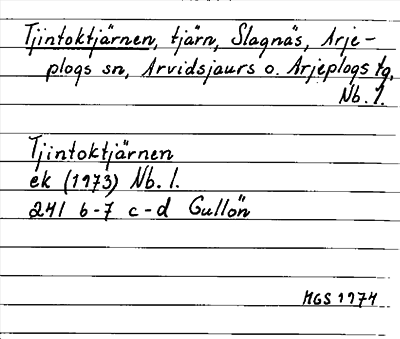 Tjintoktjärnen, tjärn, Slagnäs, Arje-
plogs sn, Arvidsjaurs o. Arjeplogs tg,
Nb. l.
Tjintoktjärnen
ek (1973) Nb. l.
241 6-7 c-d Gullön
MGS 1974